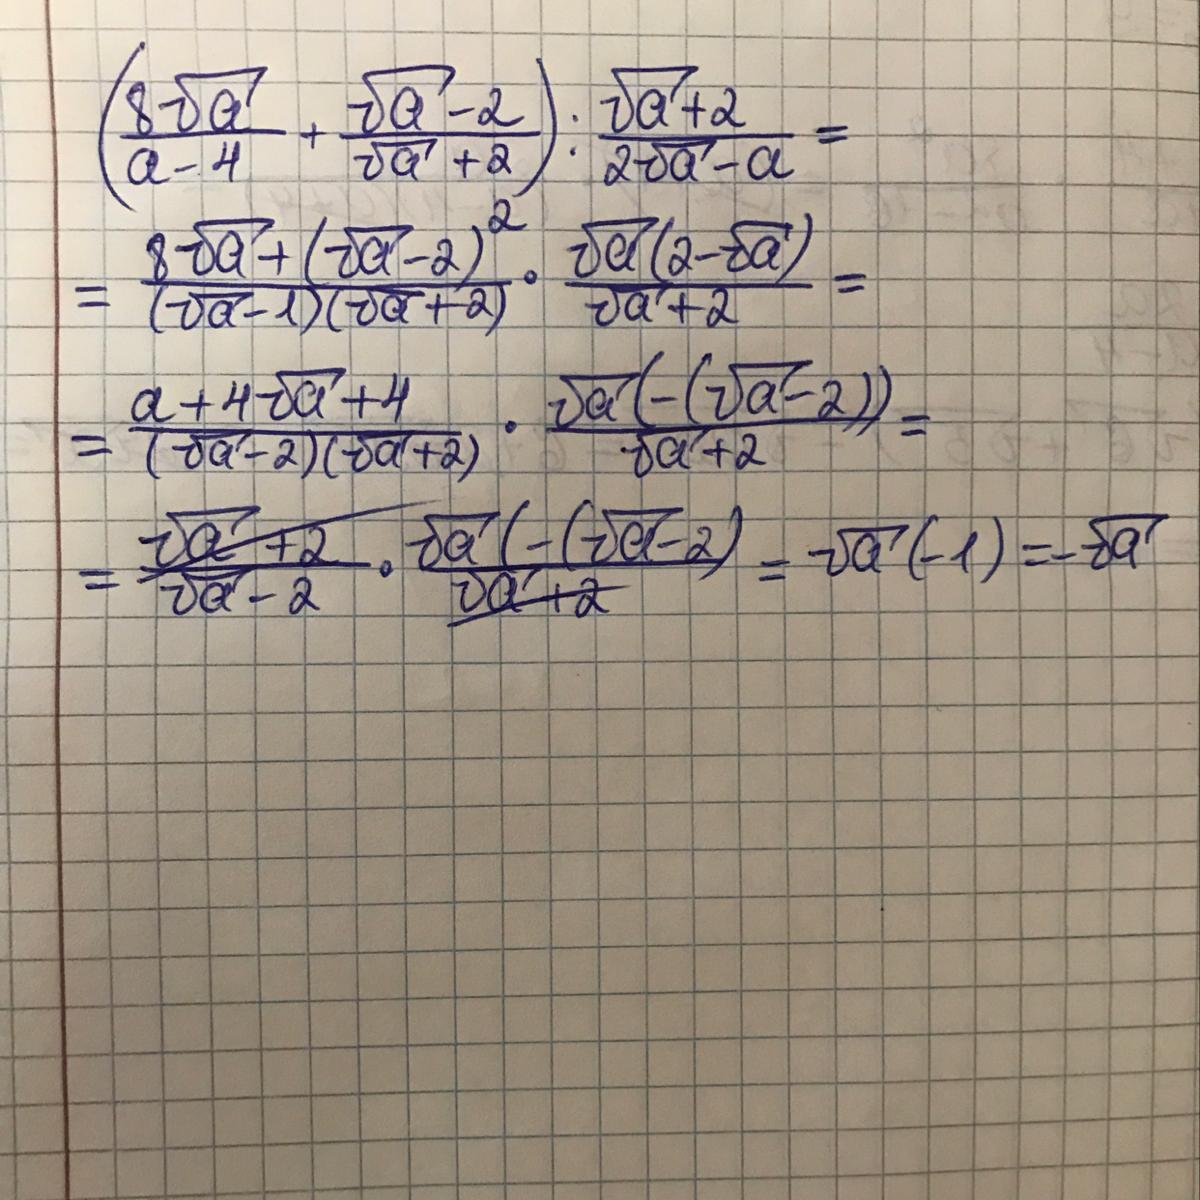 (8√a/(a-4) + (√a-2)/(√a+2)) : (√a+2)/(2√a-a) =
= (8√a+(√a-2)²)/((√a-1)(√a+2)) · (√a(2-√a))/(√a+2) =
= (a+4√a+4)/((√a-2)(√a+2)) · (√a(-(√a-2)))/(√a+2) =
= (√a+2)/(√a-2) · (√a(-(√a-2))/(√a+2) = √a(-1) = -√a